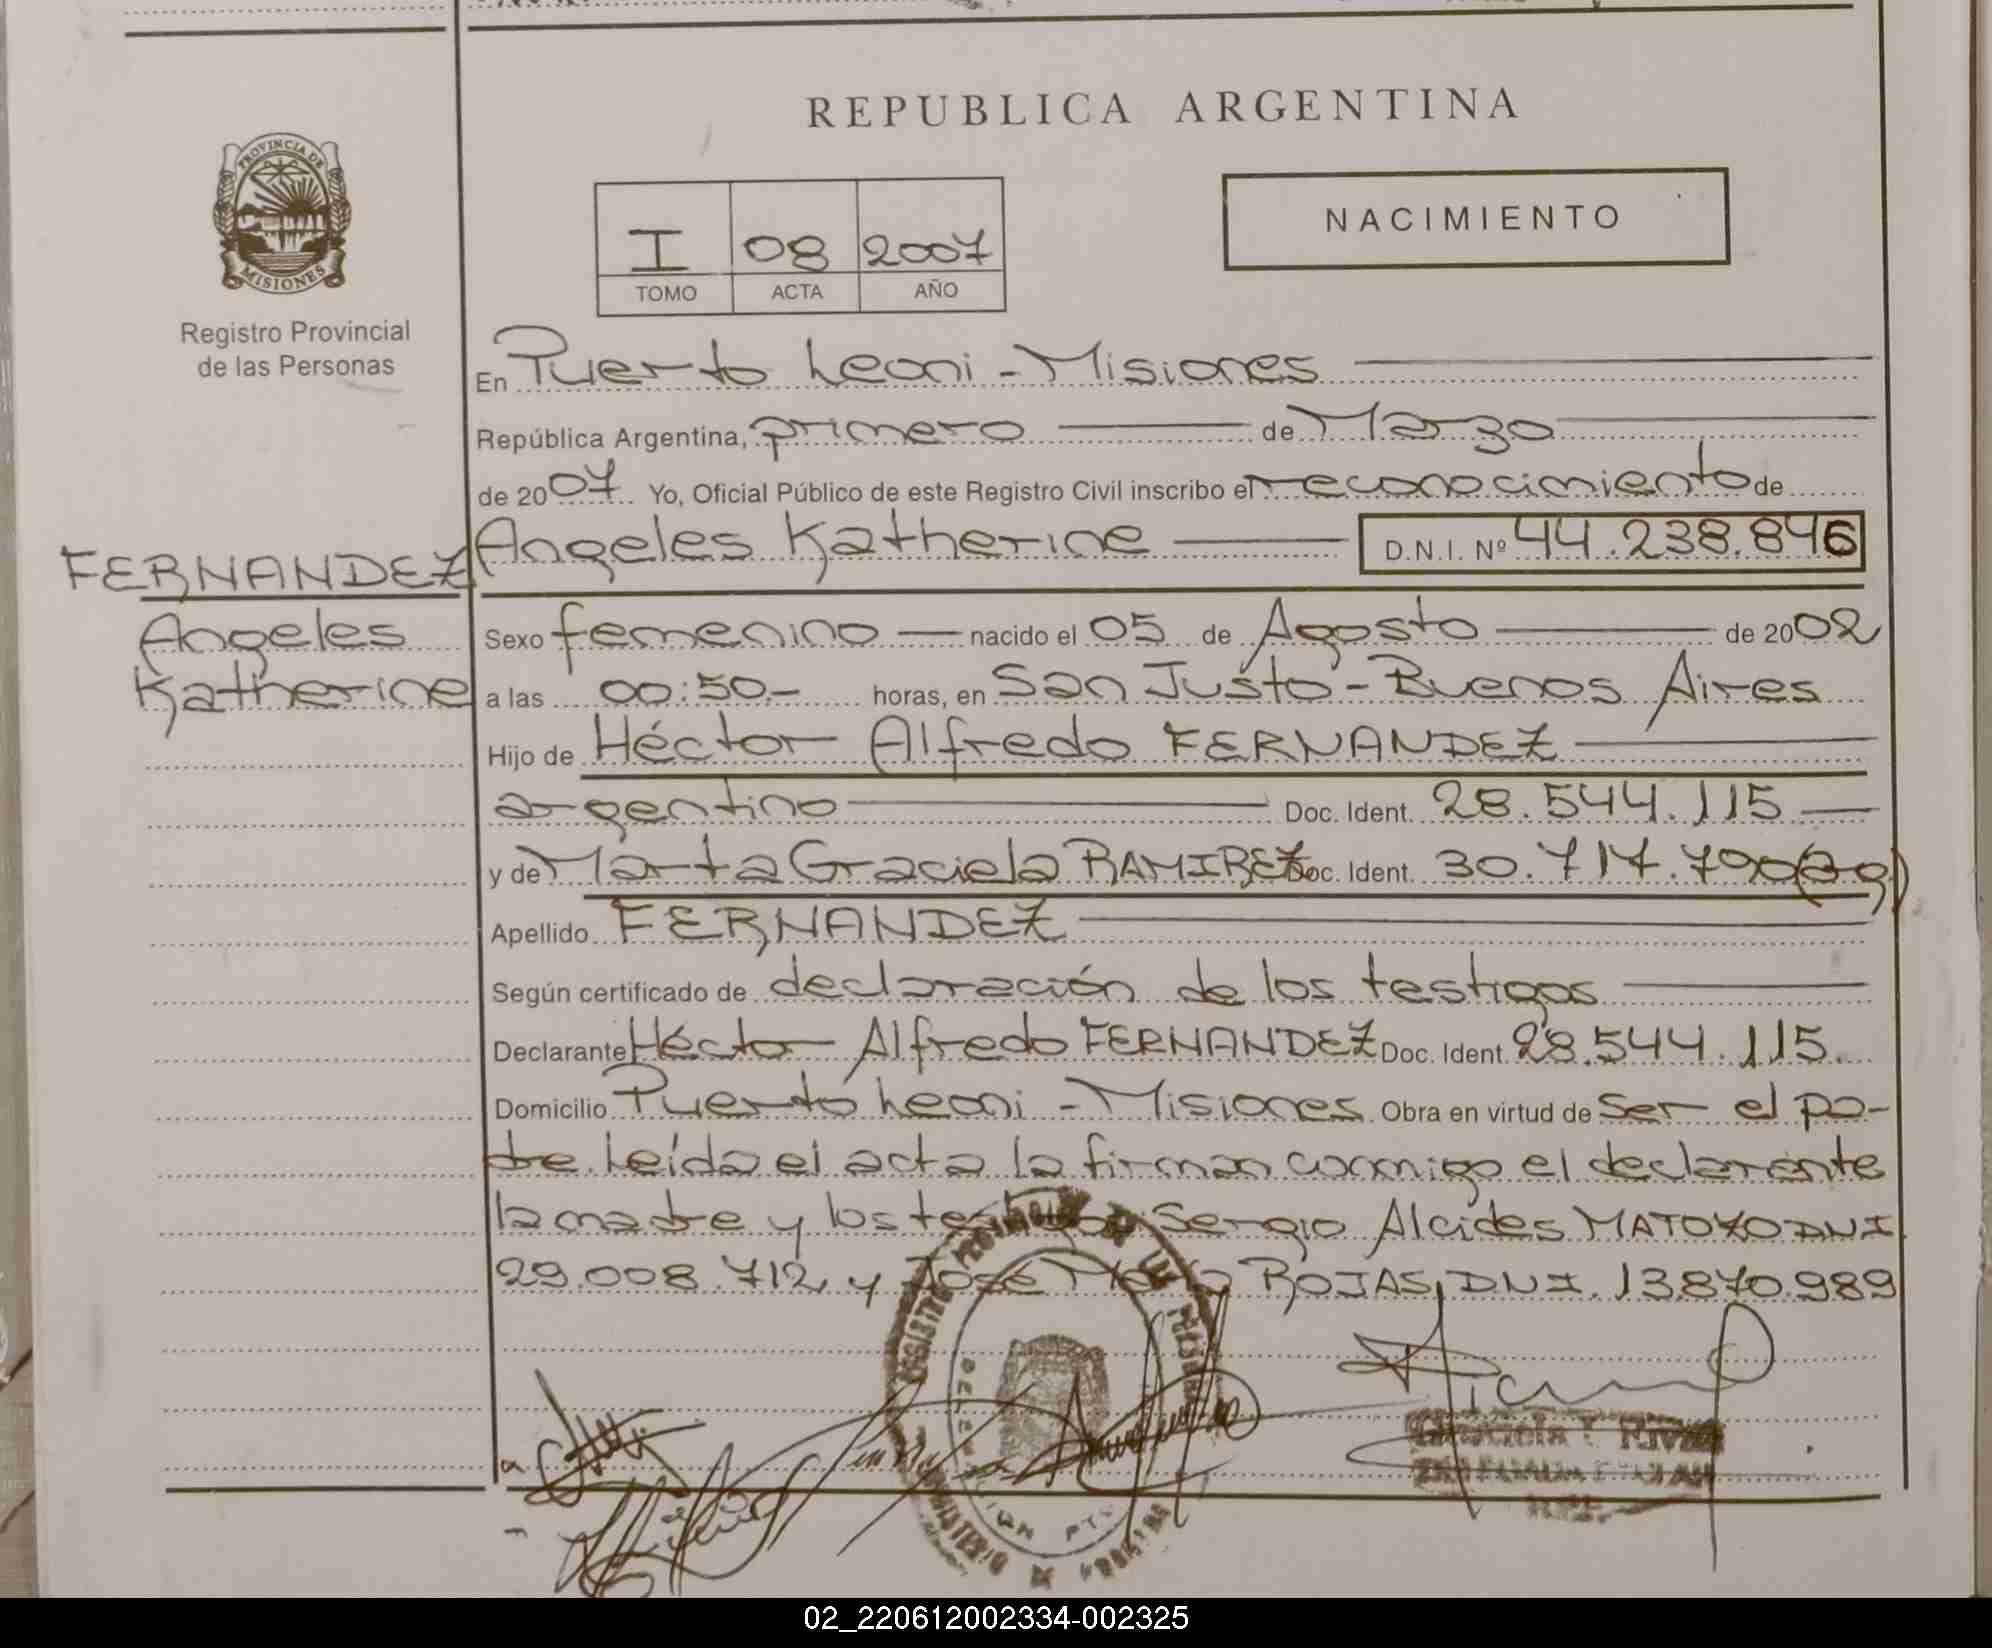 REPUBLICA ARGENTINA
PROVINCIA DE
MISIONES
Registro Provincial
de las Personas
NACIMIENTO
I 08 2007
TOMO ACTA AÑO
En Puerto Leoni - Misiones
República Argentina, primero de Marzo
de 2007 Yo, Oficial Público de este Registro Civil inscribo el reconocimiento de
Angeles Katherine D.N.I. Nº 44.238.846
FERNANDEZ
Angeles
Katherine
Sexo femenino nacido el 05 de Agosto de 2002
a las 00:50.- horas, en San Justo - Buenos Aires
Hijo de Héctor Alfredo FERNANDEZ
argentino Doc. Ident. 28.544.115
y de Marta Graciela RAMIREZ Doc. Ident. 30.717.790(ag)
Apellido FERNANDEZ
Según certificado de declaración de los testigos
Declarante Héctor Alfredo FERNANDEZ Doc. Ident. 28.544.115
Domicilio Puerto Leoni - Misiones Obra en virtud de ser el pa-
dre. Leída el acta la firman conmigo el declarante
la madre y los testigos Sergio Alcides MATOZO DNI
29.008.712 y José María ROJAS, DNI. 13.870.989
02_220612002334-002325